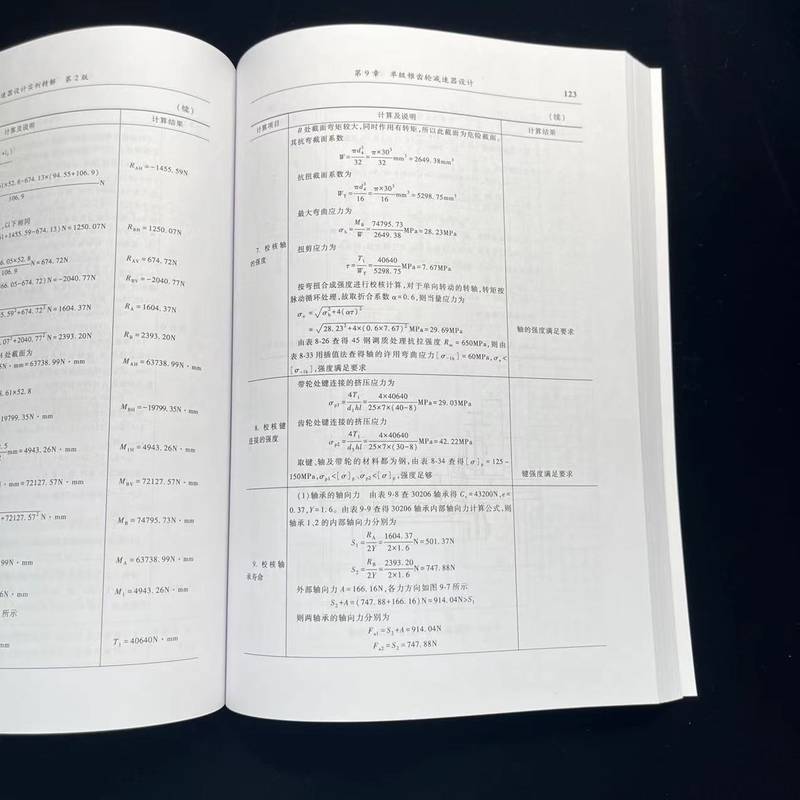 速器设计实例精解 第2版
(续)
计算及说明 计算结果
61×52.8-674.13×(94.55+106.9)
106.9
N
R_AH=-1455.59N
,以下略同
51+1455.59-674.13)N=1250.07N R_BH=1250.07N
6.05×52.8
106.9
N=674.72N R_AV=674.72N
66.05-674.72)N=-2040.77N R_BV=-2040.77N
5.59²+674.72²N=1604.37N R_A=1604.37N
.07²+2040.77²N=2393.20N R_B=2393.20N
A处截面为
8N·mm=63738.99N·mm M_AH=63738.99N·mm
.61×52.8
19799.35N·mm M_BH=-19799.35N·mm
mm=4943.26N·mm M_1H=4943.26N·mm
N·mm=72127.57N·mm M_BV=72127.57N·mm
+72127.57²N·mm M_B=74795.73N·mm
99N·mm M_A=63738.99N·mm
6N·mm M_1=4943.26N·mm
所示
mm T_1=40640N·mm
第9章 单级锥齿轮减速器设计 123
(续)
计算项目 计算及说明 计算结果
B处截面弯矩较大,同时作用有转矩,所以此截面为危险截面。
其抗弯截面系数
W=πd_4³/32=π×30³/32 mm³=2649.38mm³
抗扭截面系数为
W_T=πd_4³/16=π×30³/16 mm³=5298.75mm³
最大弯曲应力为
σ_b=M_B/W=74795.73/2649.38 MPa=28.23MPa
7. 校核轴
的强度
扭剪应力为
τ=T_1/W_T=40640/5298.75 MPa=7.67MPa
按弯扭合成强度进行校核计算,对于单向转动的转轴,转矩按
脉动循环处理,故取折合系数α=0.6,则当量应力为
σ_e=√σ_b²+4(ατ)²
=√28.23²+4×(0.6×7.67)² MPa=29.69MPa
轴的强度满足要求
由表8-26查得45钢调质处理抗拉强度R_m=650MPa,则由
表8-33用插值法查得轴的许用弯曲应力[σ_-1b]=60MPa,σ_e<
[σ_-1b],强度满足要求
带轮处键连接的挤压应力为
σ_p1=4T_1/d_1hl=4×40640/25×7×(40-8) MPa=29.03MPa
8. 校核键
连接的强度
齿轮处键连接的挤压应力为
σ_p2=4T_1/d_3hl=4×40640/25×7×(30-8) MPa=42.22MPa
取键、轴及带轮的材料都为钢,由表8-34查得[σ]_p=125~
150MPa,σ_p1<[σ]_p、σ_p2<[σ]_p,强度足够
键强度满足要求
(1)轴承的轴向力 由表9-8查30206轴承得C_r=43200N,e=
0.37,Y=1.6。由表9-9查得30206轴承内部轴向力计算公式,则
轴承1、2的内部轴向力分别为
S_1=R_A/2Y=1604.37/2×1.6 N=501.37N
9. 校核轴
承寿命
S_2=R_B/2Y=2393.20/2×1.6 N=747.88N
外部轴向力A=166.16N,各力方向如图9-7所示
S_2+A=(747.88+166.16)N=914.04N>S_1
则两轴承的轴向力分别为
F_a1=S_2+A=914.04N
F_a2=S_2=747.88N